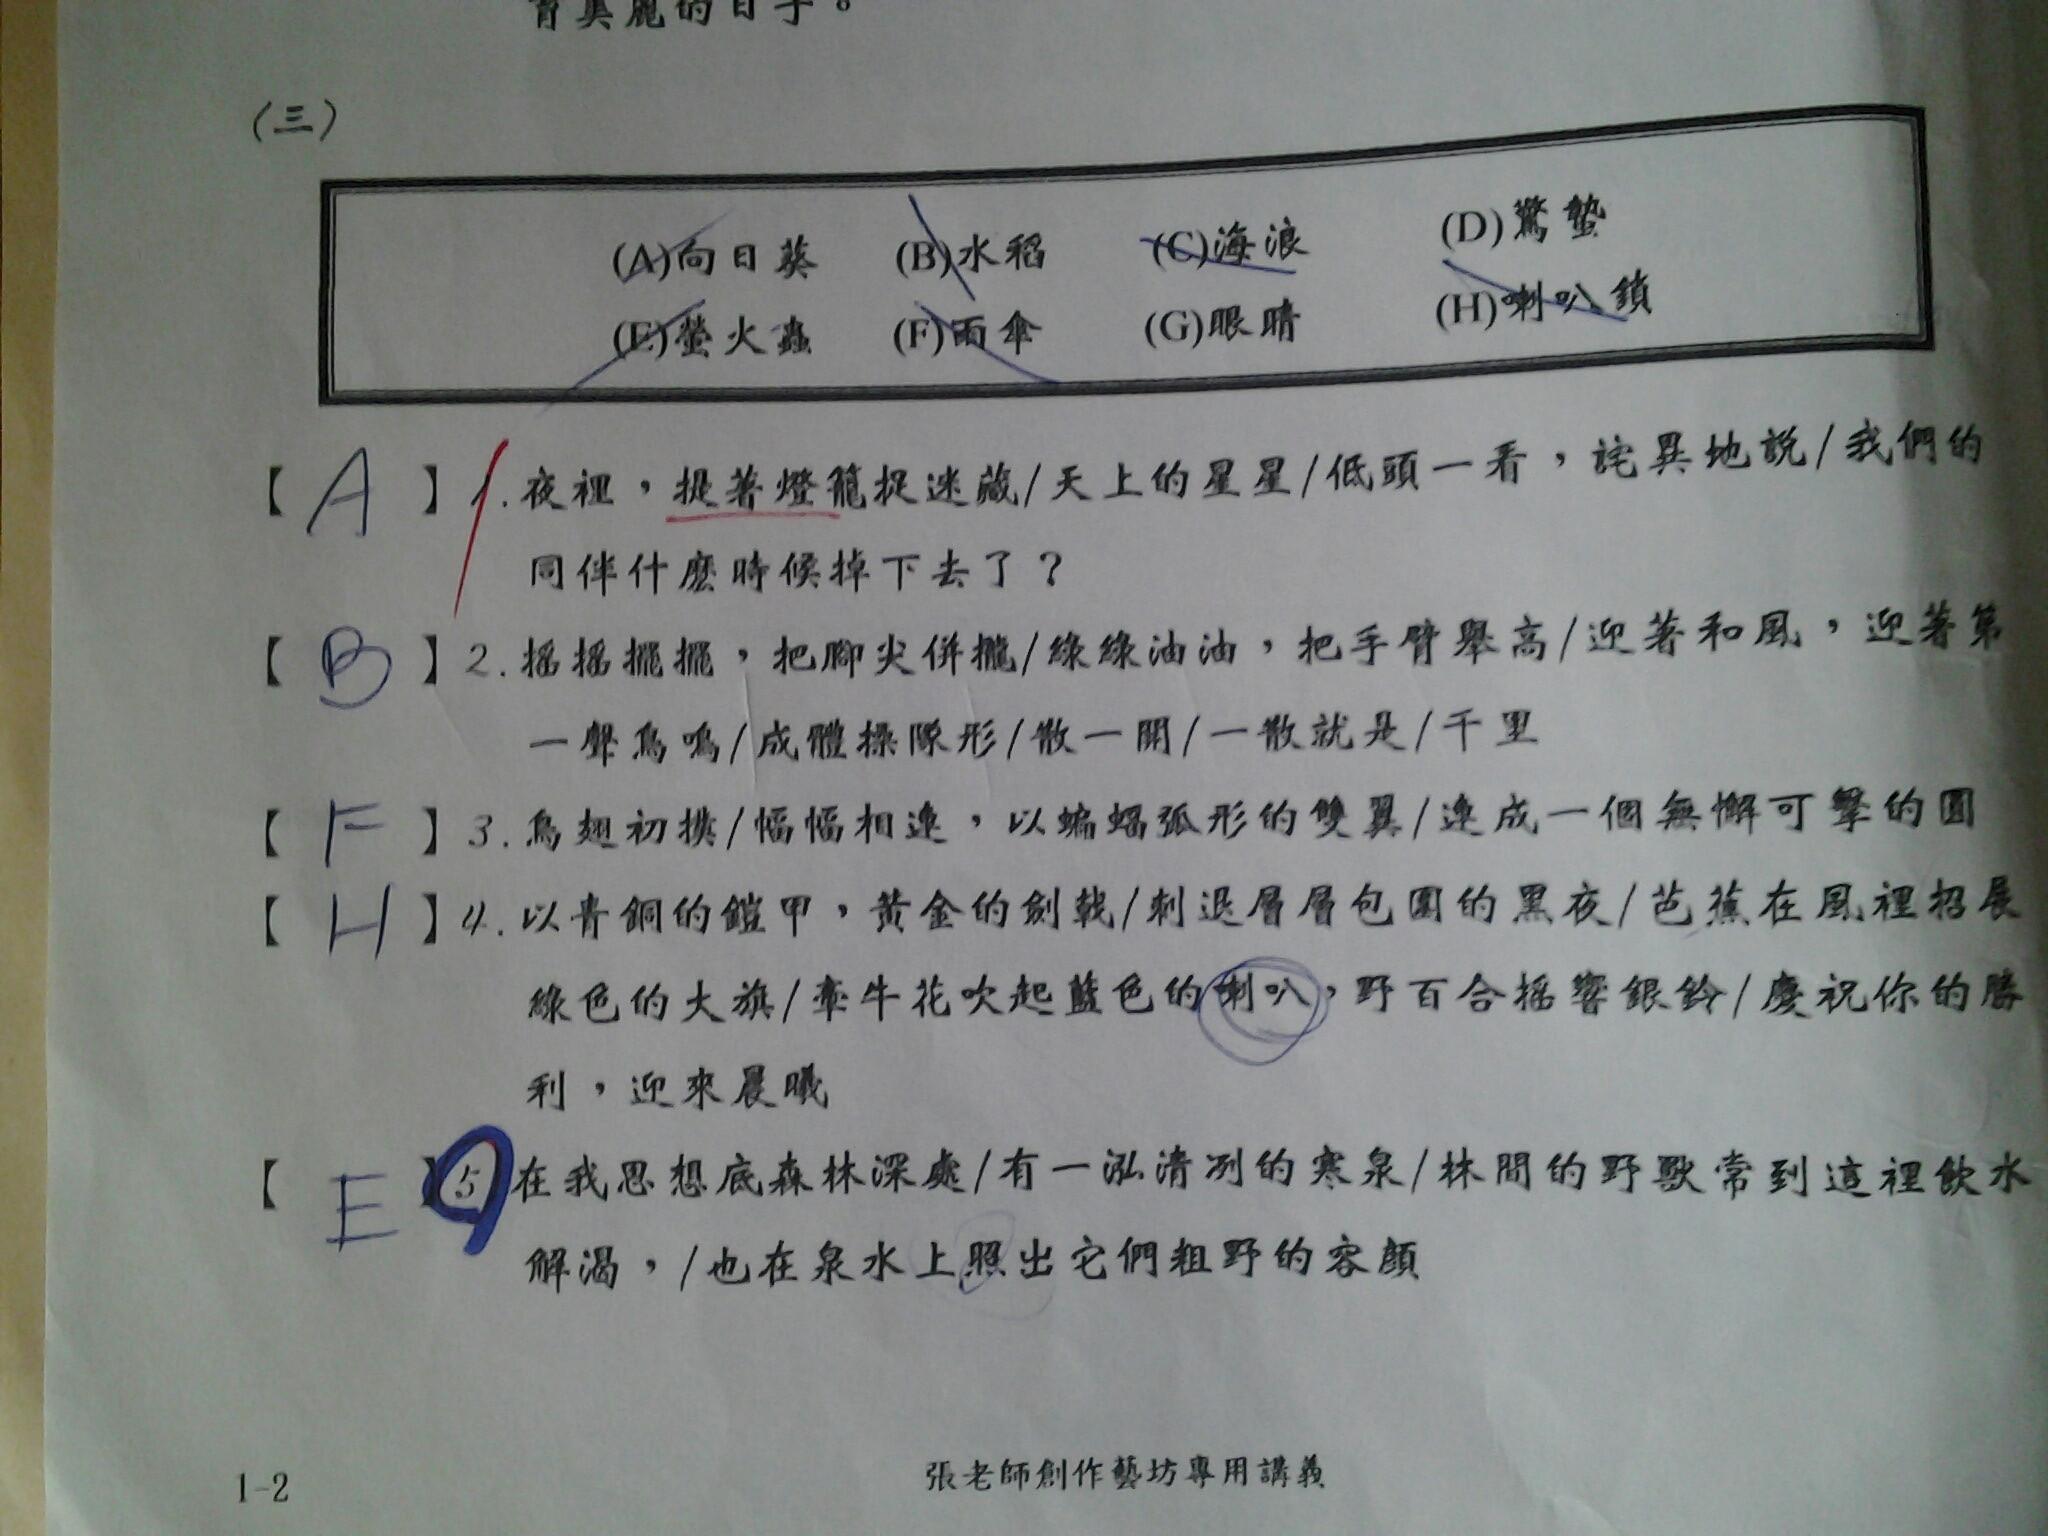 育美麗的日子。
(三)
(A)向日葵 (B)水稻 (C)海浪 (D)驚蟄
(E)螢火蟲 (F)雨傘 (G)眼睛 (H)喇叭鎖
【 A 】1.夜裡，提著燈籠捉迷藏/天上的星星/低頭一看，詫異地說/我們的
同伴什麼時候掉下去了？
【 B 】2.搖搖擺擺，把腳尖併攏/綠綠油油，把手臂舉高/迎著和風，迎著第
一聲鳥鳴/成體操隊形/散一開/一散就是/千里
【 F 】3.鳥翅初撲/幅幅相連，以蝙蝠弧形的雙翼/連成一個無懈可擊的圓
【 H 】4.以青銅的鎧甲，黃金的劍戟/刺退層層包圍的黑夜/芭蕉在風裡招展
綠色的大旗/牽牛花吹起藍色的喇叭，野百合搖響銀鈴/慶祝你的勝
利，迎來晨曦
【 E 】5.在我思想底森林深處/有一泓清冽的寒泉/林間的野獸常到這裡飲水
解渴，/也在泉水上照出它們粗野的容顏
1-2 張老師創作藝坊專用講義